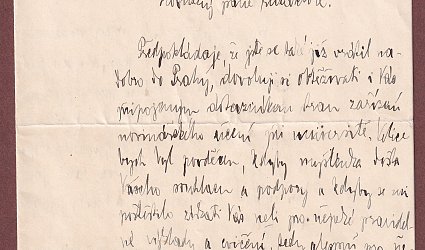 Vážený pane
Předpokládaje, že jste se také již vrátil na-
dobro do Prahy, dovoluji si obtěžovati i Vás
připojeným dotazníkem stran zařízení
učení při universitě. Velice
bych byl povděčen, kdyby myšlenka došla
Vašeho souhlasu a podpory a kdyby se mi
poštěstilo získati Vás neli pro nějaké pravidel-
né výklady a cvičení, tedy